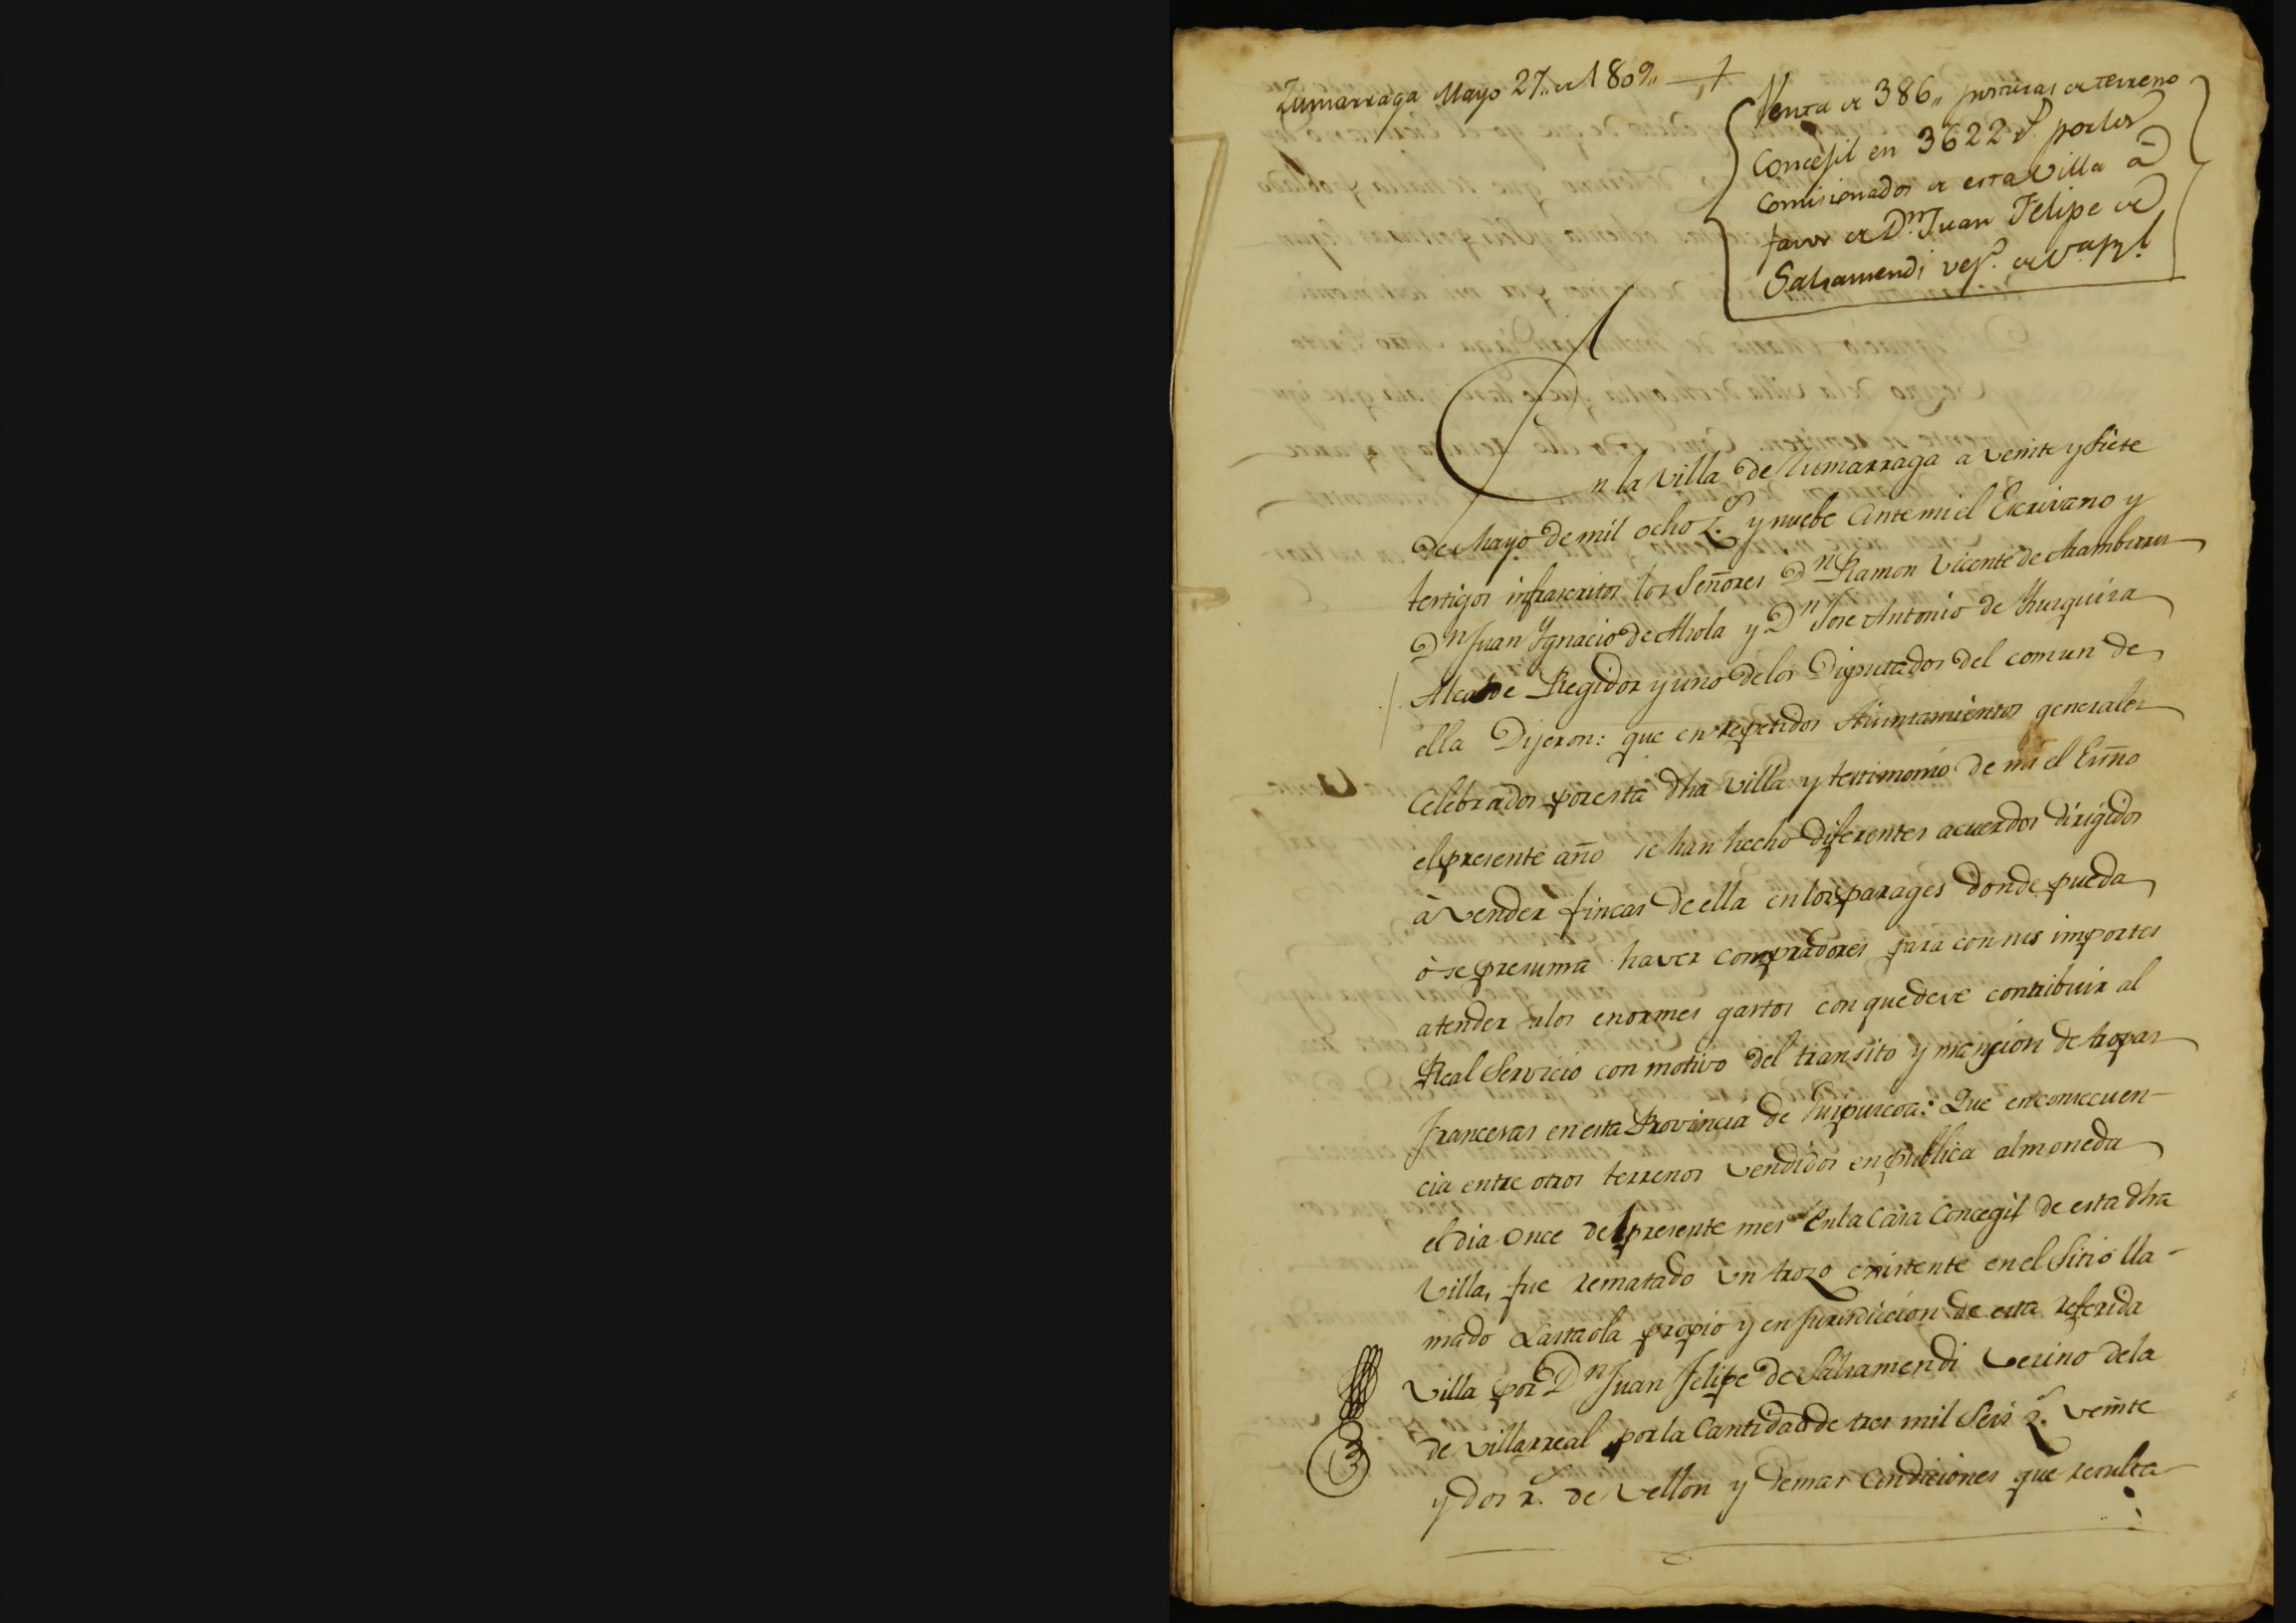 Zumarraga Mayo 27,, de 1809,,
Venta de 386,, posturas de terreno
Concejil en 3622 r.s por los
Comisionados de esta Villa à
favor de Dn Juan Felipe de
Salsamendi vez.o de V.a R.l
En la Villa de Zumarraga a veinte y siete
de Mayo de mil ocho z.s y nuebe ante mi el Escrivano y
testigos infrascritos los Señores Dn Ramon Vicente de Aramburu
Dn Juan Ygnacio de Alzola y Dn Jose Antonio de
Alcalde Regidor y uno de los Diputados del comun de
ella Dijeron: que en repetidos Aiuntamientos generales
Celebrados por esta dha Villa y testimonio de mi el Essno
el presente año se han hecho diferentes acuerdos dirigidos
à vender fincas de ella en los parages donde pueda
ò se presuma haver compradores para con sus importes
atender a los enormes gastos con que deve contribuir al
Real Servicio con motivo del transito y mansion de tropas
francesas en esta Provincia de Guipuzcoa: Que en consecuen-
cia entre otros terrenos vendidos en publica almoneda
el dia once del presente mes en la Casa Concegil de esta dha
Villa, fue rematado un trozo existente en el sitio lla-
mado Lastaola propio y en Jurisdiccion de esta referida
Villa por Dn Juan Felipe de Salsamendi vezino de la
de Villarreal por la Cantidad de tres mil Seis z.s veinte
y dos r.s de Vellon y demas Condiciones que resulta